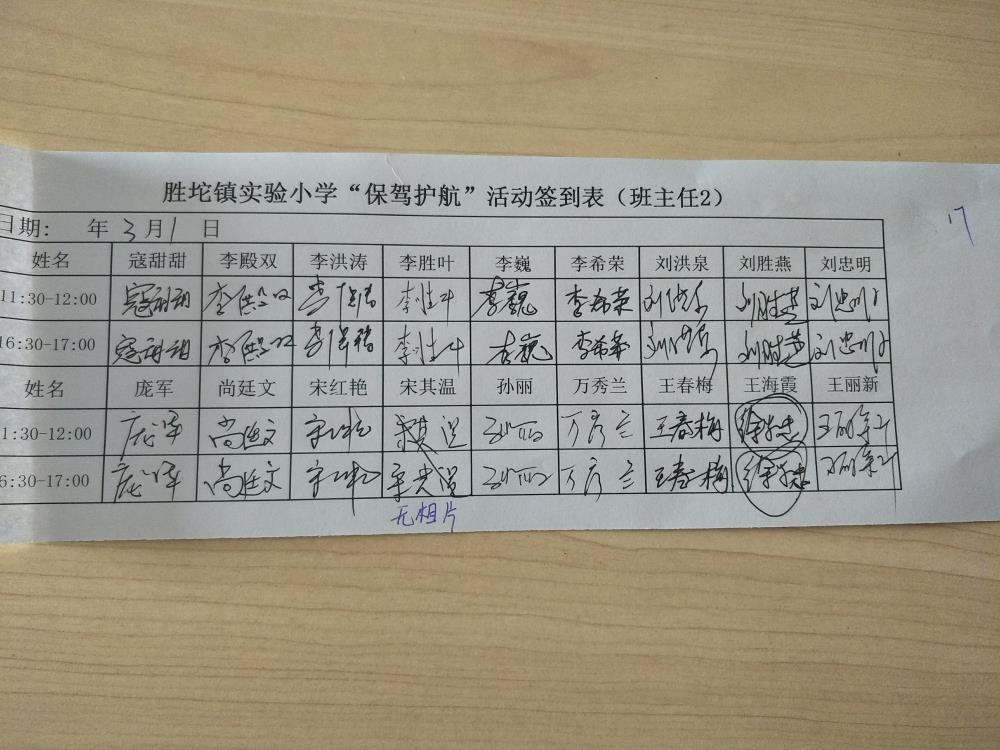 胜坨镇实验小学“保驾护航”活动签到表（班主任2）
17
日期: 年 3 月 1 日
姓名 寇甜甜 李殿双 李洪涛 李胜叶 李巍 李希荣 刘洪泉 刘胜燕 刘忠明
11:30-12:00 寇甜甜 李殿双 李洪涛 李胜叶 李巍 李希荣 刘洪泉 刘胜燕 刘忠明
16:30-17:00 寇甜甜 李殿双 李洪涛 李胜叶 李巍 李希荣 刘洪泉 刘胜燕 刘忠明
姓名 庞军 尚廷文 宋红艳 宋其温 孙丽 万秀兰 王春梅 王海霞 王丽新
1:30-12:00 庞军 尚廷文 宋红艳 宋其温 孙丽 万秀兰 王春梅 王丽新
6:30-17:00 庞军 尚廷文 宋红艳 宋其温 孙丽 万秀兰 王春梅 王丽新
无相片